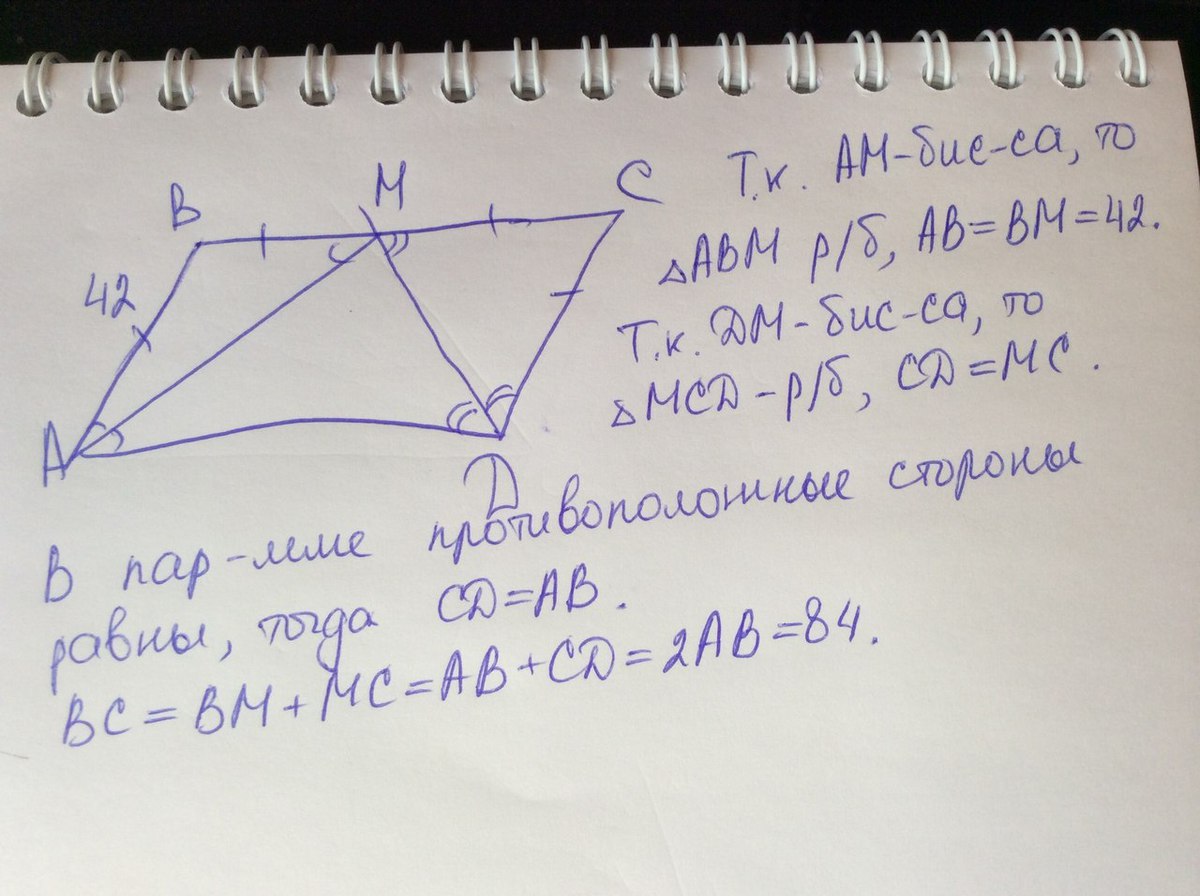 B
M
C
42
A
D
Т.к. АМ-бис-са, то
△ABM р/б, AB=BM=42.
Т.к. DM-бис-са, то
△MCD-р/б, CD=MC.
В пар-мме противоположные стороны
равны, тогда CD=AB.
BC=BM+MC=AB+CD=2AB=84.